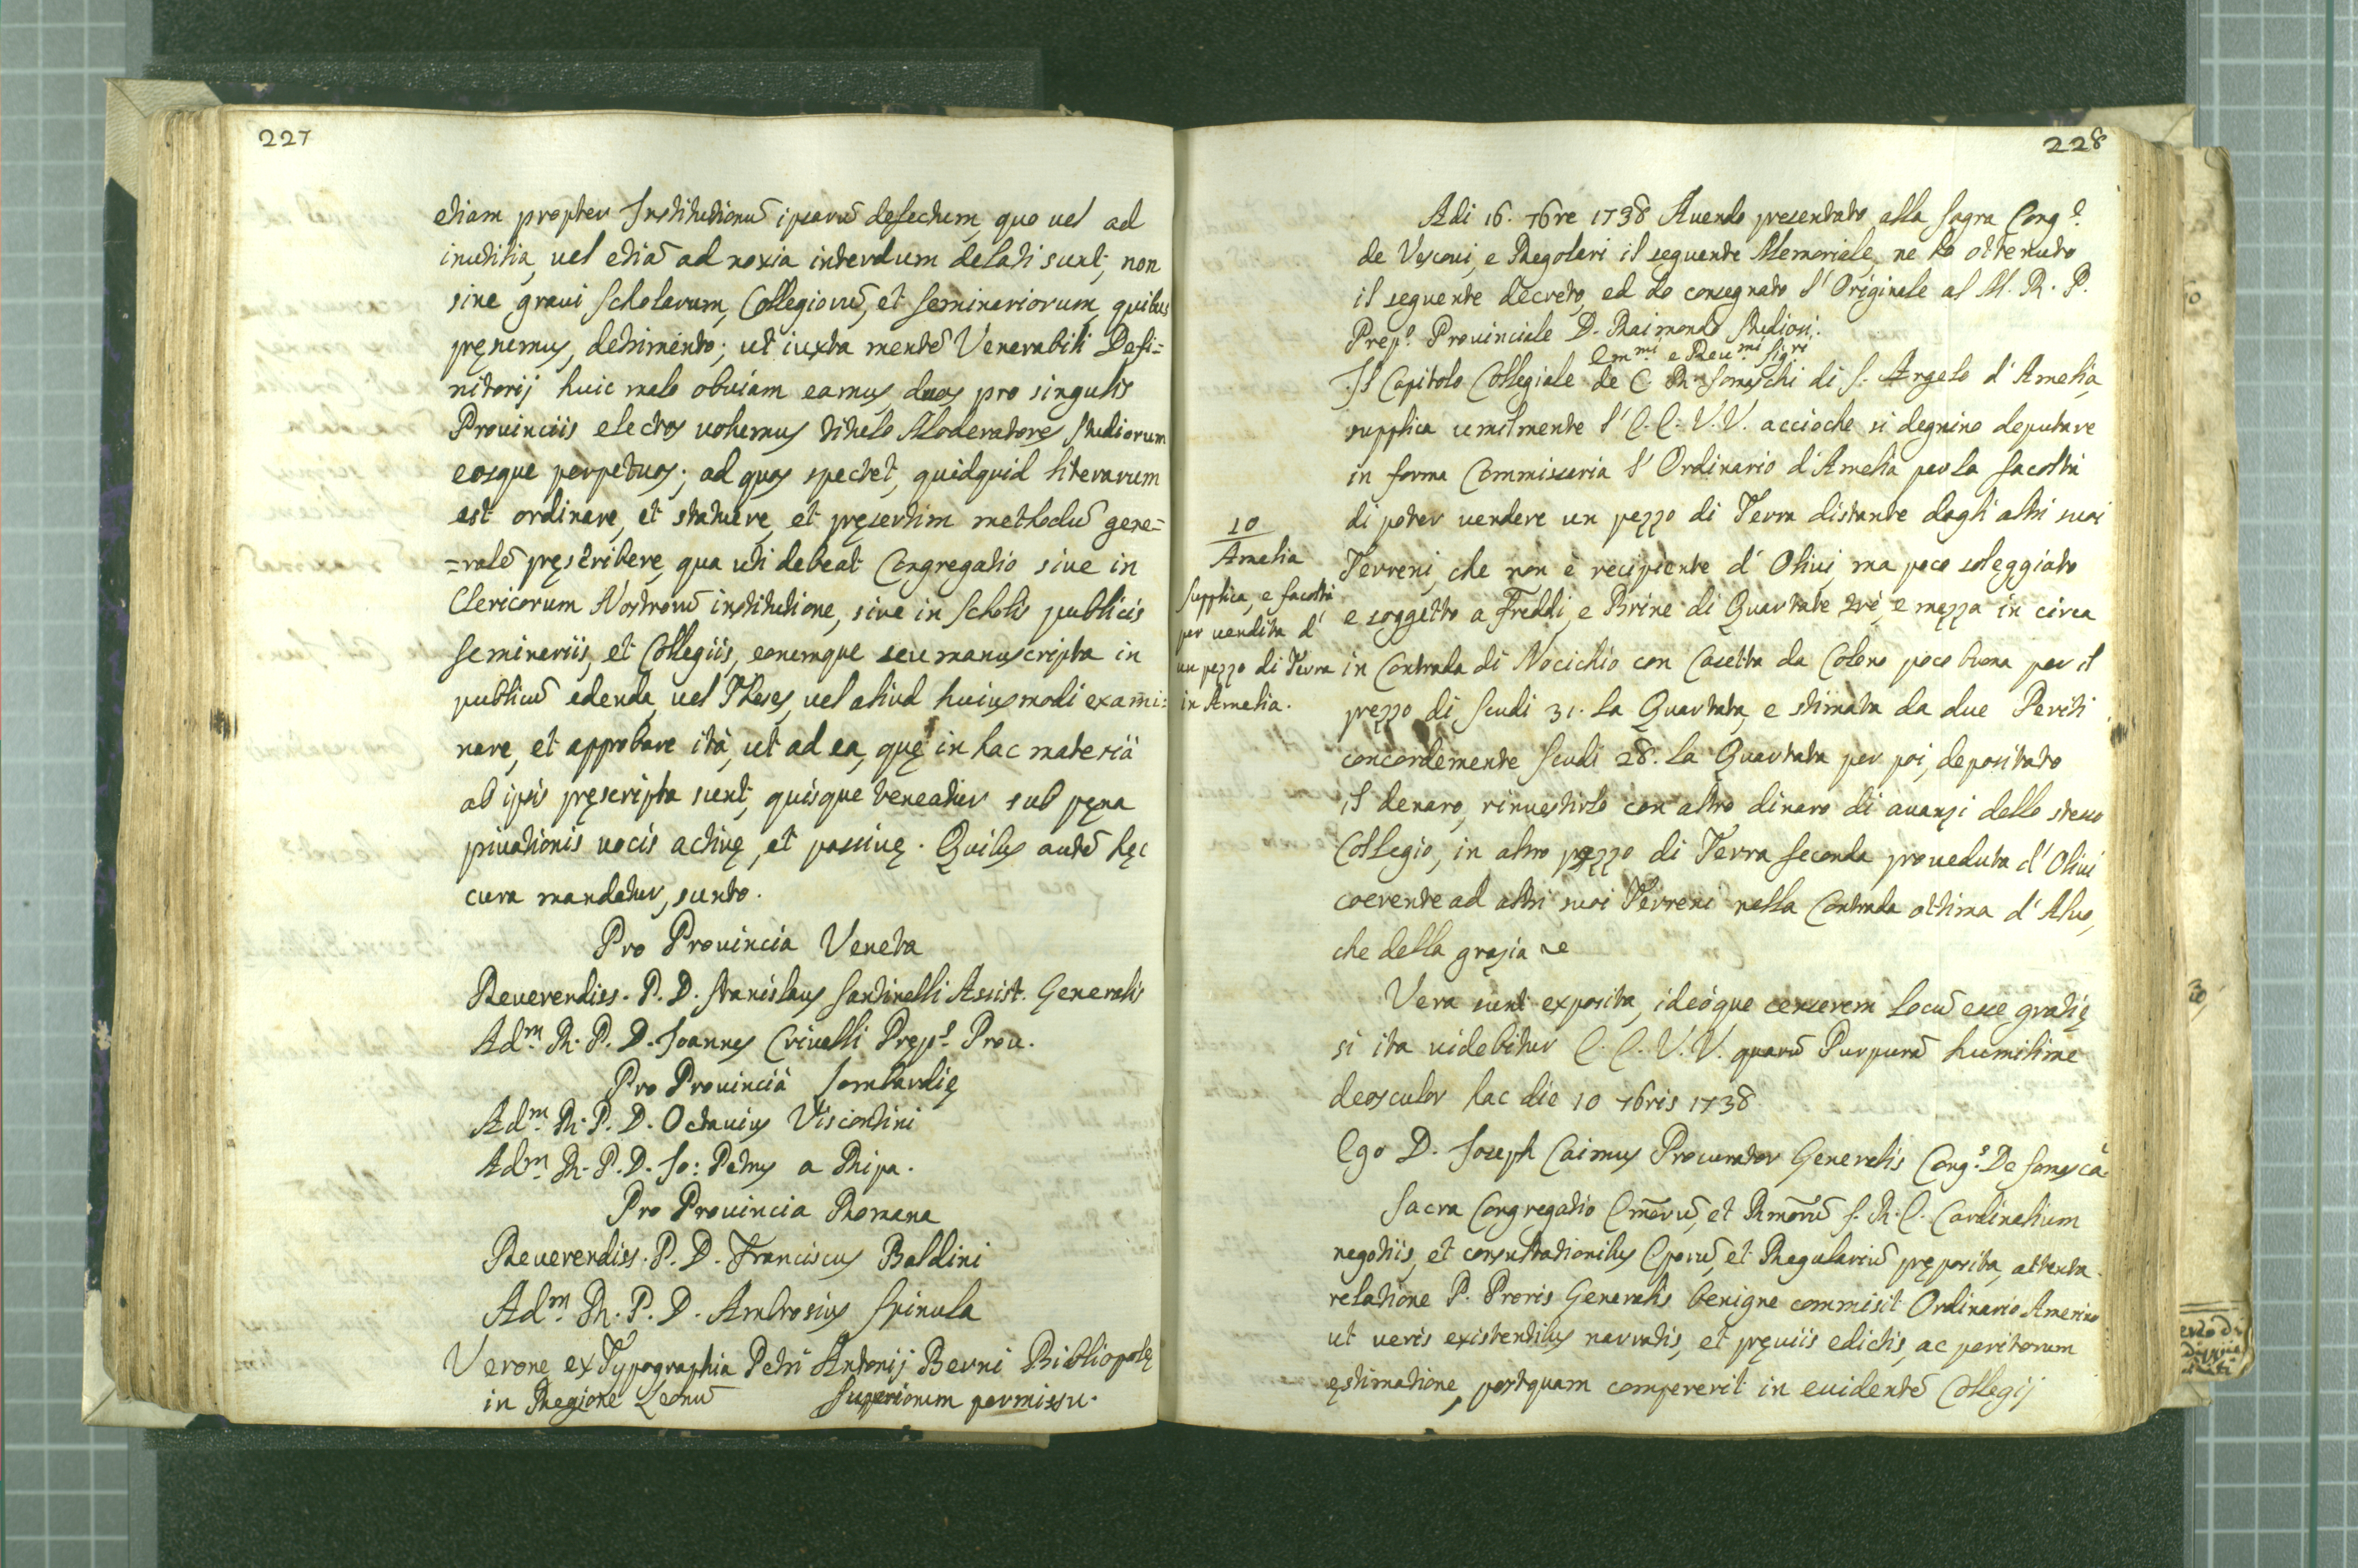 227
etiam propter Institutionũ ipsarũ defectum, quo vel ad
inutilia, vel etiã ad noxia interdum delati sunt, non
sine graui Scholarum, Collegiorũ, et Seminariorum, quibus
pręsumus, detrimento; ut iuxta mentẽ Venerabili Defi=
nitorij huic malo obuiam eamus, duos pro singulis
Prouinciis electos uolumus titulo Moderatores Studiorum
eosque perpetuos; ad quos spectet, quidquid literarum
est ordinare, et statuere, et pręsertim methodũ gene=
=ralẽ pręscribere, qua uti debeat Congregatio siue in
Clericorum Nostrorũ institutione, siue in Scholis publicis
Seminariis, et Collegiis, eorumque seu manuscripta in
publicũ edenda, uel Theses, uel aliud huiusmodi exami=
nare, et approbare ità, ut ad ea, quę in hac materià
ab ipsis pręscripta sunt, quisque teneatur sub pęna
priuationis uocis actiuę, et passiuę. Quibus autẽ hęc
cura mandatur, sunto.
Pro Prouincia Veneta
Reuerendiss. P. D. Stanislaus Santinelli Assist. Generalis
Adm. R. P. D. Joannes Criuelli Pręp.º Prou.
Pro Prouincià Lombardię
Adm. R. P. D. Octauius Viscontini
Adm. R. P. D. Jo: Petrus a Ripa.
Pro Prouincia Romana
Reuerendiss. P. D. Franciscus Baldini
Adm. R. P. D. Ambrosius Spinula
Verone ex Typographia Petri Antonij Berni Bibliopolę
in Regione Leonũ Superiorum permissu.
228
Adi 16. 7bre 1738 Auendo presentato alla Sagra Cong.e
de Vescoui, e Regolari il seguente Memoriale, ne ho ottenuto
il seguente decreto, ed ho consegnato l'Originale al M. R. P.
Prep.º Prouinciale D. Raimondo Studiosi.
Em.mi e Reu.mi Sig.ri
Il Capitolo Collegiale de C. R. Somaschi di S. Angelo d'Amelia,
supplica umilmente l'E. E. V. V. accioche si degnino deputare
in forma Commissaria l'Ordinario d'Amelia per la facoltà
di poter uendere un pezzo di Terra distante dagli altri suoi
Terreni, che non è recipiente d'Oliui, ma poco soleggiato
e soggetto a Freddi, e Brine di Quartate trè, e mezza in circa
in Contrada di Nocichio con Casetta da Colono poco buona per il
prezzo di Scudi 31. la Quartata, e stimata da due Periti
concordemente Scudi 28. la Quartata per poi, depositato
il denaro, rinuestirlo con altro dinaro di auanzi dello stesso
Collegio, in altro pezzo di Terra feconda proueduta d'Oliui
coerente ad altri suoi Terreni nella Contrada ottima d'Aluo,
che della grazia &c
10
Amelia
Supplica, e facoltà
per uendita d'
un pezzo di Terra
in Amelia.
Vera sunt exposita, ideóque censerem locũ esse gratię
si ita uidebitur E. E. V. V. quarũ Purpurã humilime
deosculor hac die 10 7bris 1738
Ego D. Joseph Caimus Procurator Generalis Cong.s De Somascã
Sacra Congregatio Em̃orũ, et Rm̃orũ S. R. E. Cardinalium
negotiis, et consultationibus Eporũ, et Regulariũ pręposita, attenta
relatione P. Proris Generalis benigne commisit Ordinario Amerino
ut ueris existentibus narratis, et pręuiis edictis, ac peritorum
ęstimatione, postquam compererit in euidentẽ Collegij